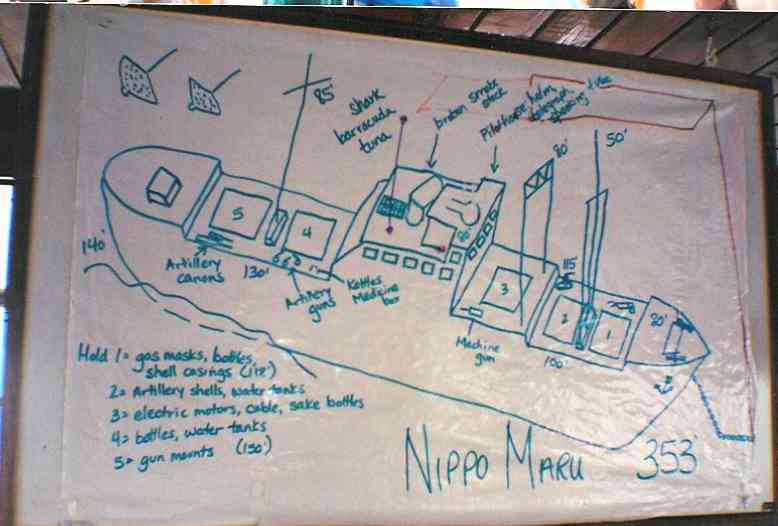 85'
shark
barracuda
tuna
broken smoke
stack
Pilothouse, helm,
telegraph
50'
80'
140'
5
4
Artillery
canons
130'
Artillery
guns
Kettles
Medicine
box
3
Machine
gun
115'
2
1
100'
Hold 1= gas masks, bottles,
shell casings (118')
2= Artillery shells, water tanks
3= electric motors, cable, sake bottles
4= bottles, water tanks
5= gun mounts (150')
NIPPO MARU 353